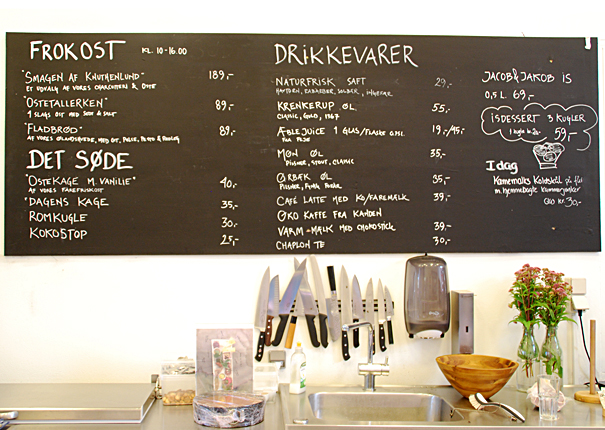 FROKOST KL. 10-16.00
"SMAGEN AF KNUTHENLUND" 189,-
ET UDVALG AF VORES CHARCUTERI & OSTE
"OSTETALLERKEN" 89,-
4 SLAGS OST MED SØDT & SALT
"FLADBRØD" 89,-
AF VORES ØLANDSHVEDE, MED OST, PØLSE,
DET SØDE
"OSTEKAGE M. VANILIE" 40,-
AF VORES FÅREFRISKOST
"DAGENS KAGE 35,-
ROMKUGLE 30,-
KOKOSTOP 25,-
DRIKKEVARER
NATURFRISK SAFT 29,-
HAVTORN, RABARBER, SOLBÆR, INGEFÆR
KRENKERUP ØL 55,-
CLASSIC, GULD, 1367
ÆBLEJUICE 1 GLAS/FLASKE 19,-/45,-
FRA FEJØ
MØN ØL 35,-
PILSNER, STOUT, CLASSIC
ØRBÆK ØL 35,-
PILSNER,
CAFÉ LATTE MED KO/FÅREMÆLK 39,-
ØKO KAFFE FRA KANDEN
VARM MÆLK MED CHOKOSTICK 39,-
CHAPLON TE 30,-
JACOB & JAKOB IS
0,5 L. 69,-
ISDESSERT 3 KUGLER
1 kugle kr. 20,- 59,-
I dag
Kærnemælks Koldskål på
m. hjemmebagte kammerjunker
kr. 30,-